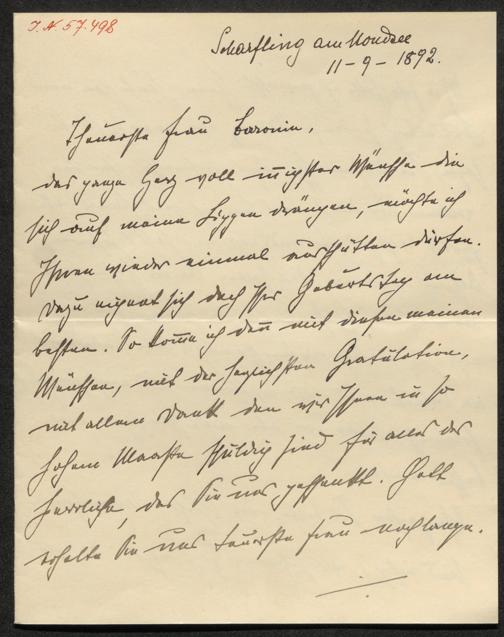 I. N. 57.498
Scharfling am Mondsee
11-9-1892.
Theuerste Frau Baronin,
das ganze Herz voll innigster Wünsche die
sich auf meine Lippen drängen, möchte ich
Ihnen wieder einmal ausschütten dürfen.
Dazu eignet sich doch Ihr Geburtstag am
besten. So komme ich denn mit diesen meinen
Wünschen, mit der herzlichsten Gratulation,
mit allem Dank den wir Ihnen in so
hohem Maaße schuldig sind für alles das
herrliche, das Sie uns geschenkt. Gott
erhalte Sie uns teuerste Frau noch lange.